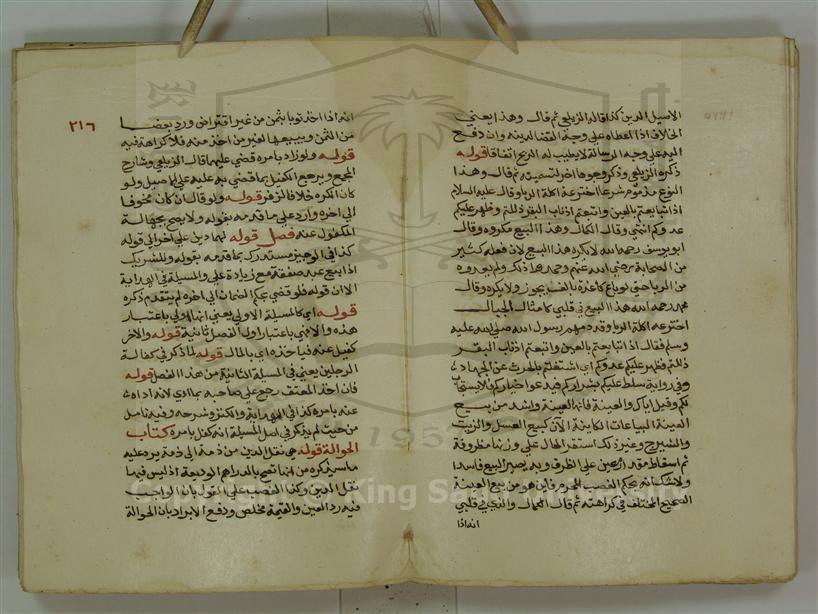 الاصيل الدين كذا قاله الزيلعي ثم قال وهذا يعني
الخلاف اذا اعطاه على وجه القضا لدينه وان دفع
اليه على وجه الرسالة لا يطيب له الربح اتفاقا قوله
ذكره الزيلعي وذكر وجوها اخر لتسميته ثم قال وهذا
النوع مذموم شرعا اخترعه اكلة الربا وقال عليه السلام
اذا تبايعتم بالعين واتبعتم اذناب البقر ذللتم وظهر عليكم
عدوكم انتهى وقال الكمال وهذا البيع مكروه وقال
ابو يوسف رحمه الله لا يكره هذا البيع لان فعله كثير
من الصحابة رضي الله عنهم وحمدوا على ذلك ولم يعدوه
من الربا حتى لو باع كاغدة بالف يجوز ولا يكره وقال
محمد رحمه الله هذا البيع في قلبي كامثال الجبال
اخترعه اكلة الربا وقد ذمهم رسول الله صلى الله عليه
وسلم فقال اذا تبايعتم بالعين واتبعتم اذناب البقر
ذللتم فظهر عليكم عدوكم اي اشتغلتم بالحرث عن الجهاد
وفي رواية سلط عليكم شراركم فيدعوا خياركم فلا يستجاب
لكم وقيل اياك والعينة فانها لعينة واشد من بيع
العينة البياعات الكاينة الآن كبيع العسل والزيت
والشيرج وغير ذلك استقر الحال على وزنها مظروفة
ثم اسقاط مقدار معين على الظرف وبه يصير البيع فاسدا
ولا شك انه بحكم الغصب المحرم فاين هو من بيع العينة
الصحيح المختلف في كراهته ثم قال الكمال والذي في قلبي
انه اذا
٢١٦
انه اذا اخذ ثوبا بثمن من غير اقتراض ورد بعضا
من الثمن ويبيعها لغير من اخذ منه فلا كراهة فيه
قوله ولو زاد بامره قضي عليهما قال الزيلعي وشارح
المجمع ويرجع الكفيل بما قضي به عليه على الاصيل ولو
كان انكره خلافا لزفر قوله ولو قال ان كان مخوفا
الى اخره وارد على ما قدمه بقوله ولا يصح بجهالة
المكفول عنه فصل قوله لهما دين على اخر الى قوله
كذا في الوجيز مستدرك بما قدمه بقوله وللشريك
اذا بيع عبد صفقة مع زيادة على والمسيلة في الهداية
الا ان قوله فلو قضي بحكم الضمان الى اخره لم يتقدم ذكره
قوله اي كالمسيلة الاولى يعني انها اولى باعتبار
هذه والا فهي باعتبار اول الفصل ثانية قوله والاخر
كفيل عنه فيما خذه اي بالمال قوله لما ذكر في كفالة
الرجلين يعني في المسيلة الثانية من هذا الفصل قوله
فان اخذ المعتق رجع على صاحبه بما ادى لانه اداه
عنه بامره كذا في الهداية والكنز وشرحه وفيه تامل
من حيث لم يذكر في اصل المسيلة انه كفل بامره كتاب
الحوالة قوله هي نقل الدين من ذمة الى ذمة يرد عليه
ما سيذكره من انها تصح بالدراهم الوديعة اذ ليس فيها
نقل الدين وكذا الغصب على القول بان الواجب
فيه رد العين والقيمة مخلص ودفع الايراد بان الحوالة
Copyright © King Saud University
1957